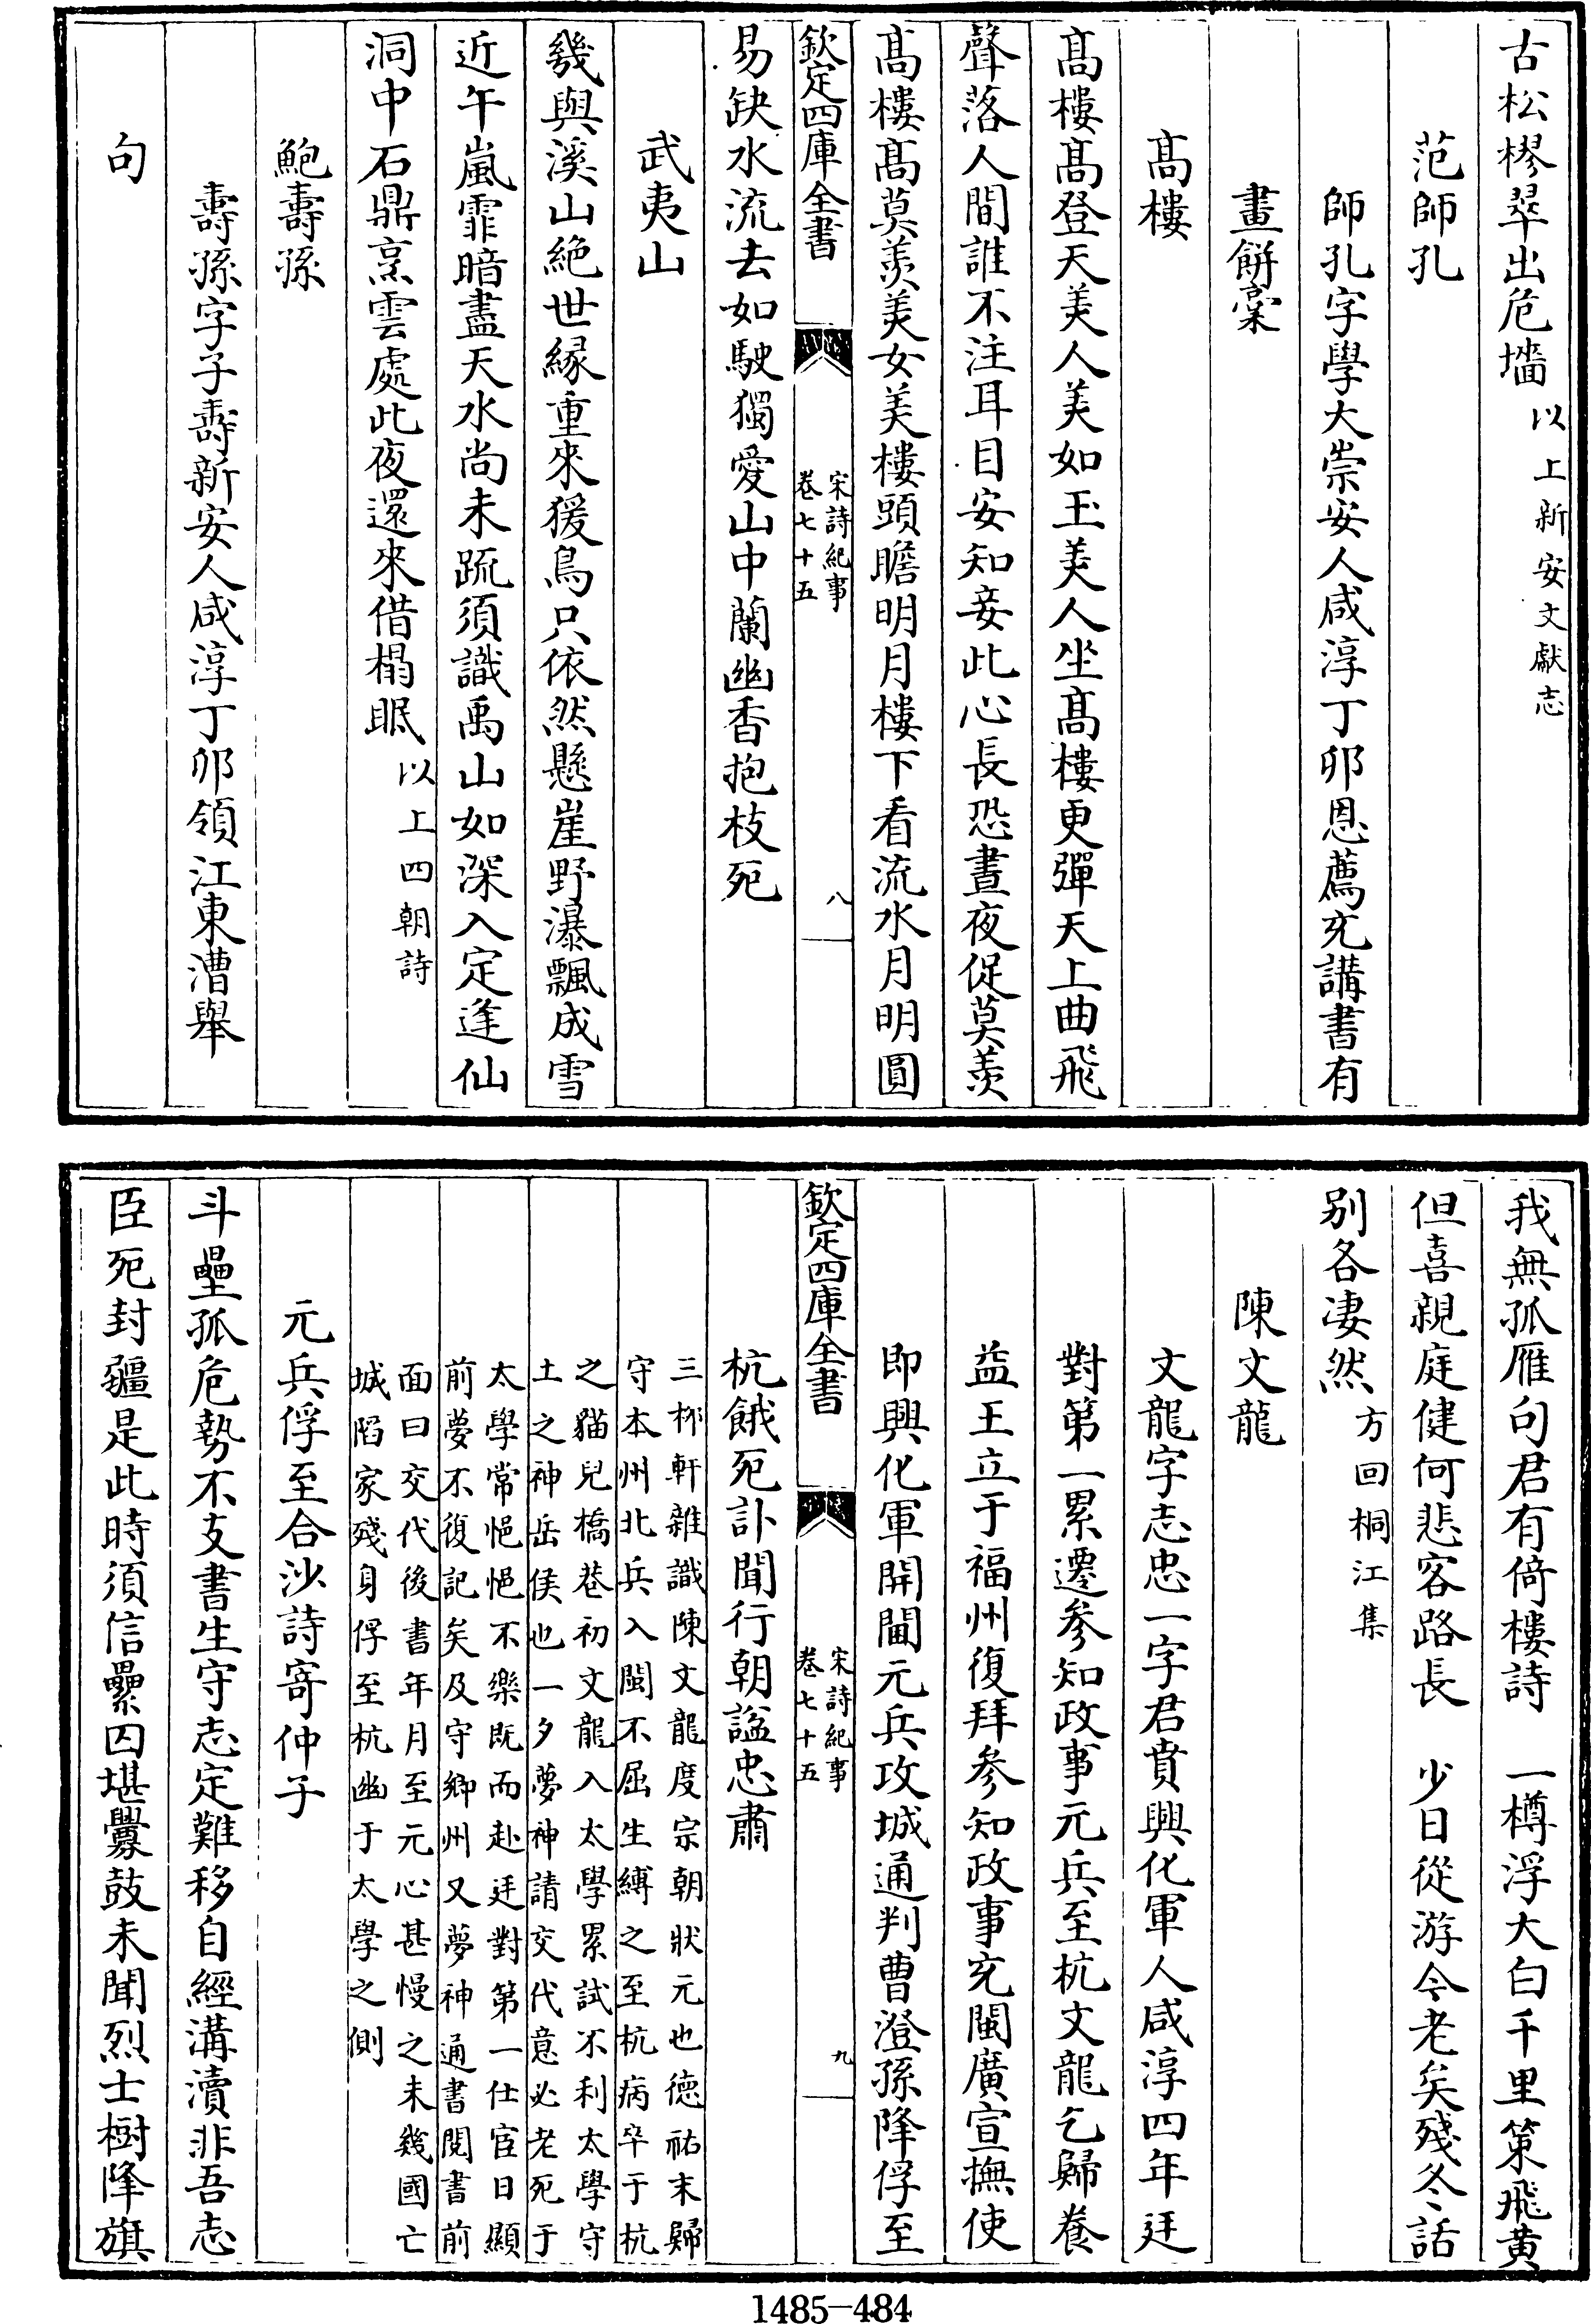 古松樛翠出危墻以上新安文獻志
范師孔
師孔字學大崇安人咸淳丁卯恩薦充講書有
畫餅藁
髙樓
髙樓髙登天美人美如玉美人坐髙樓更彈天上曲飛
聲落人間誰不注耳目安知妾此心長恐晝夜促莫羡
髙樓髙莫羡美女美樓頭瞻明月樓下看流水月明圓
欽定四庫全書
宋詩紀事
卷七十五
八
易缺水流去如駛獨愛山中蘭幽香抱枝死
武夷山
幾與溪山絶世緣重來猨鳥只依然懸崖野瀑飄成雪
近午嵐霏暗盡天水尚未䟽須識禹山如深入定逢仙
洞中石鼎烹雲處此夜還來借榻眠以上四朝詩
鮑壽孫
壽孫字子壽新安人咸淳丁卯領江東漕舉
句
我無孤雁句君有倚樓詩　一樽浮大白千里策飛黄
但喜親庭健何悲客路長　少日從游今老矣殘冬話
别各凄然方回桐江集
陳文龍
文龍字志忠一字君賁興化軍人咸淳四年廷
對第一累遷參知政事元兵至杭文龍乞歸養
益王立于福州復拜參知政事充閩廣宣撫使
即興化軍開閫元兵攻城通判曹澄孫降俘至
欽定四庫全書
宋詩紀事
卷七十五
九
杭餓死訃聞行朝諡忠肅
三栁軒雜識陳文龍度宗朝狀元也德祐末歸
守本州北兵入閩不屈生縛之至杭病卒于杭
之貓兒橋巷初文龍入太學累試不利太學守
土之神岳侯也一夕夢神請交代意必老死于
太學常悒悒不樂既而赴廷對第一仕宦日顯
前夢不復記矣及守鄉州又夢神通書閲書前
面曰交代後書年月至元心甚慢之未幾國亡
城陷家殘身俘至杭幽于太學之側
元兵俘至合沙詩寄仲子
斗壘孤危勢不支書生守志定難移自經溝瀆非吾志
臣死封疆是此時須信纍囚堪釁鼓未聞烈士樹降旗
1485—484